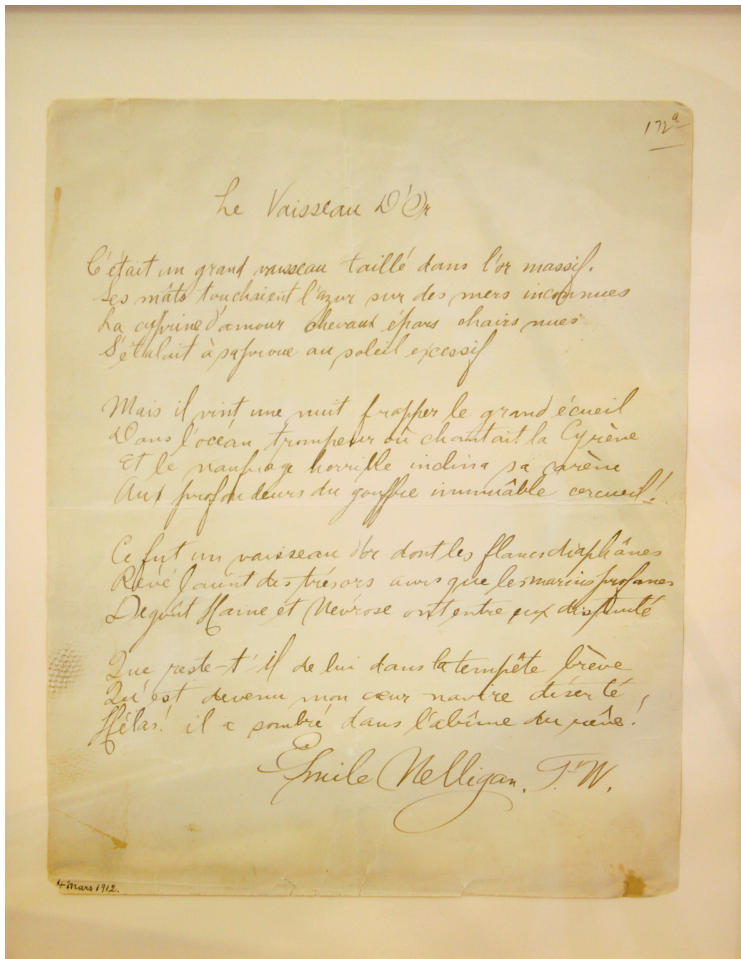 172a
Le Vaisseau D'Or
C'était un grand vaisseau taillé dans l'or massif.
Ses mâts touchaient l'azur sur des mers inconnues
La cyprine d'amour chevaux épars chairs nues
S'étalait à sa proue au soleil excessif
Mais il vint une nuit frapper le grand écueil
Dans l'océan trompeur où chantait la Cyrène
Et le naufrage horrible inclina sa carène
Aux profondeurs du gouffre immuable cercueil!
Ce fut un vaisseau d'or dont les flancs diaphânes
des trésors que les marins profanes
Dégoût Haine et Névrose ont entre eux disputé
Que reste-t'il de lui dans la tempête brève
Qu'est devenu mon cœur navire déserté,
Hélas! il a sombré dans l'abîme du rêve!
Émile Nelligan.
4 Mars 1912.